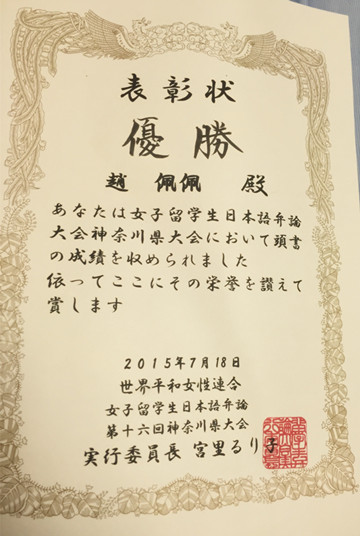 表彰状
優勝
趙 佩佩 殿
あなたは女子留学生日本語弁論
大会神奈川県大会において頭書
の成績を収められました
依ってここにその栄誉を讃えて
賞します
2015年7月18日
世界平和女性連合
女子留学生日本語弁論
第十六回神奈川県大会
実行委員長 宮里るり子